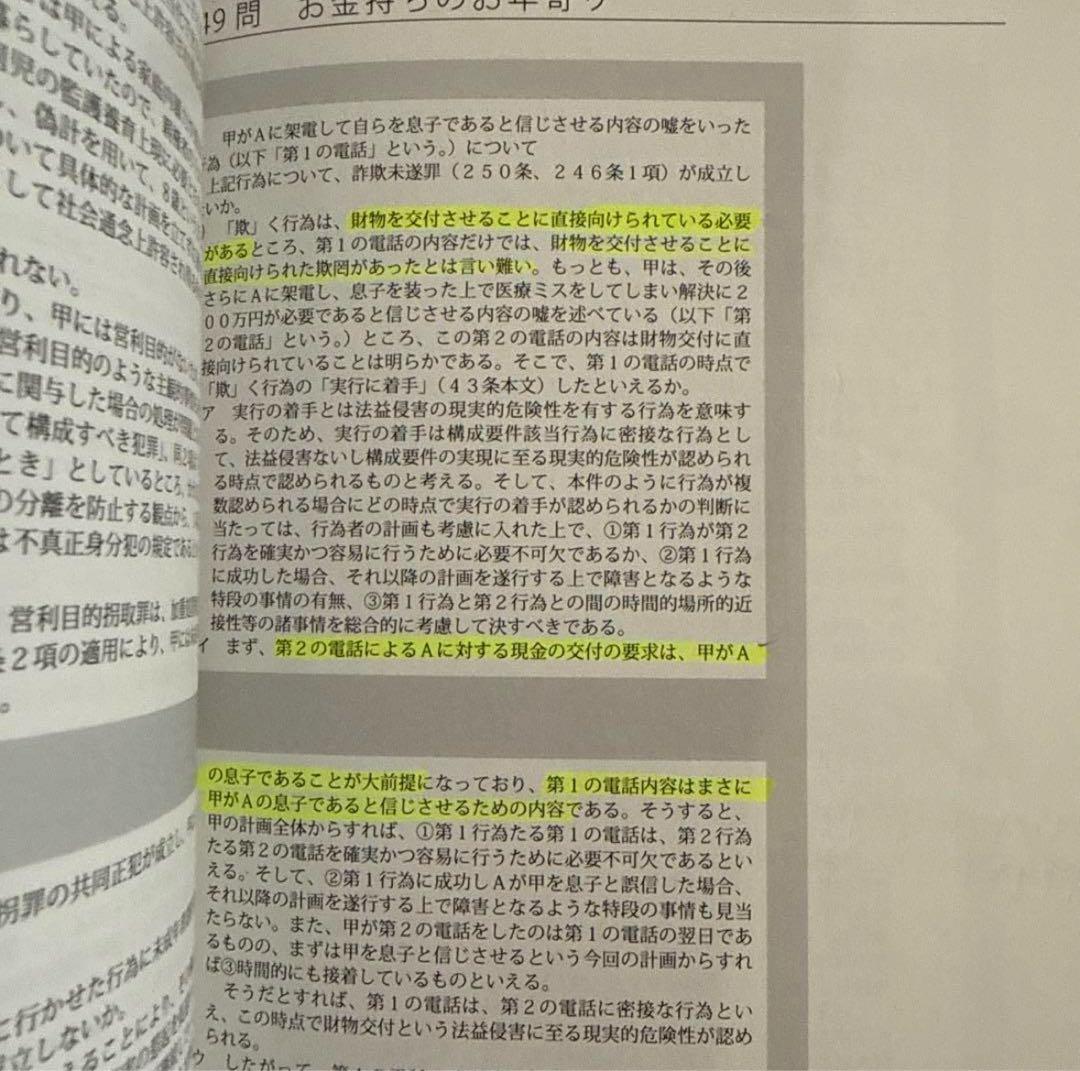 る。
は甲による
暮らしていたので、
児の監護養育上
、偽計を用いて、8歳
いて具体的な計画を立
して社会通念上許容され
れない。
り、甲には営利目的が
営利目的のような主観的
に関与した場合の処理が
て構成すべき犯罪」、同2
とき」としているところ、
の分離を防止する観点から、
は不真正身分犯の規定である
営利目的拐取罪は、加重
条2項の適用により、甲には
。
拐罪の共同正犯が成立し、
に行かせた行為に未成年
立しないか。
えることにより、
49問 お金持ちのお年寄り
甲がAに架電して自らを息子であると信じさせる内容の嘘をいった
行為(以下「第1の電話」という。)について
上記行為について、詐欺未遂罪(250条、246条1項)が成立し
ないか。
「欺」く行為は、財物を交付させることに直接向けられている必要
があるところ、第1の電話の内容だけでは、財物を交付させることに
直接向けられた欺罔があったとは言い難い。もっとも、甲は、その後
さらにAに架電し、息子を装った上で医療ミスをしてしまい解決に2
00万円が必要であると信じさせる内容の嘘を述べている(以下「第
2の電話」という。)ところ、この第2の電話の内容は財物交付に直
接向けられていることは明らかである。そこで、第1の電話の時点で
「欺」く行為の「実行に着手」(43条本文)したといえるか。
ア 実行の着手とは法益侵害の現実的危険性を有する行為を意味す
る。そのため、実行の着手は構成要件該当行為に密接な行為とし
て、法益侵害ないし構成要件の実現に至る現実的危険性が認められ
る時点で認められるものと考える。そして、本件のように行為が複
数認められる場合にどの時点で実行の着手が認められるかの判断に
当たっては、行為者の計画も考慮に入れた上で、①第1行為が第2
行為を確実かつ容易に行うために必要不可欠であるか、②第1行為
に成功した場合、それ以降の計画を遂行する上で障害となるような
特段の事情の有無、③第1行為と第2行為との間の時間的場所的近
接性等の諸事情を総合的に考慮して決すべきである。
イ まず、第2の電話によるAに対する現金の交付の要求は、甲がA
の息子であることが大前提になっており、第1の電話内容はまさに
甲がAの息子であると信じさせるための内容である。そうすると、
甲の計画全体からすれば、①第1行為たる第1の電話は、第2行為
たる第2の電話を確実かつ容易に行うために必要不可欠であるとい
える。そして、②第1行為に成功しAが甲を息子と誤信した場合、
それ以降の計画を遂行する上で障害となるような特段の事情も見当
たらない。また、甲が第2の電話をしたのは第1の電話の翌日であ
るものの、まずは甲を息子と信じさせるという今回の計画からすれ
ば③時間的にも接着しているものといえる。
そうだとすれば、第1の電話は、第2の電話に密接な行為とい
え、この時点で財物交付という法益侵害に至る現実的危険性が認め
られる。
ウ したがって、第1の